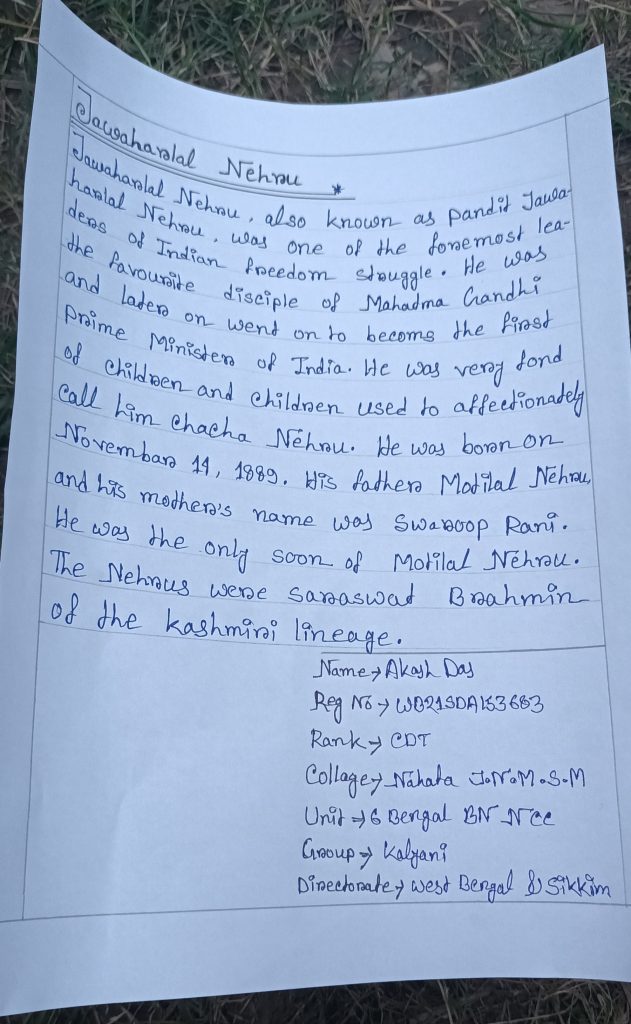 Jawaharlal Nehru *
Jawaharlal Nehru, also known as pandit Jawa-
harlal Nehru, was one of the foremost lea-
ders of Indian freedom struggle. He was
the favourite disciple of Mahatma Gandhi
and later on went on to become the first
Prime Minister of India. He was very fond
of children and children used to affectionately
call him chacha Nehru. He was born on
November 14, 1889. His father Motilal Nehru,
and his mother's name was Swaroop Rani.
He was the only soon of Motilal Nehru.
The Nehrus were saraswat Brahmin
of the kashmiri lineage.
Name → Akash Das
Reg No → WB21SDA153683
Rank → CDT
Collage → Nahata J.N.M.S.M
Unit → 6 Bengal BN NCC
Group → Kalyani
Directorate → West Bengal & Sikkim